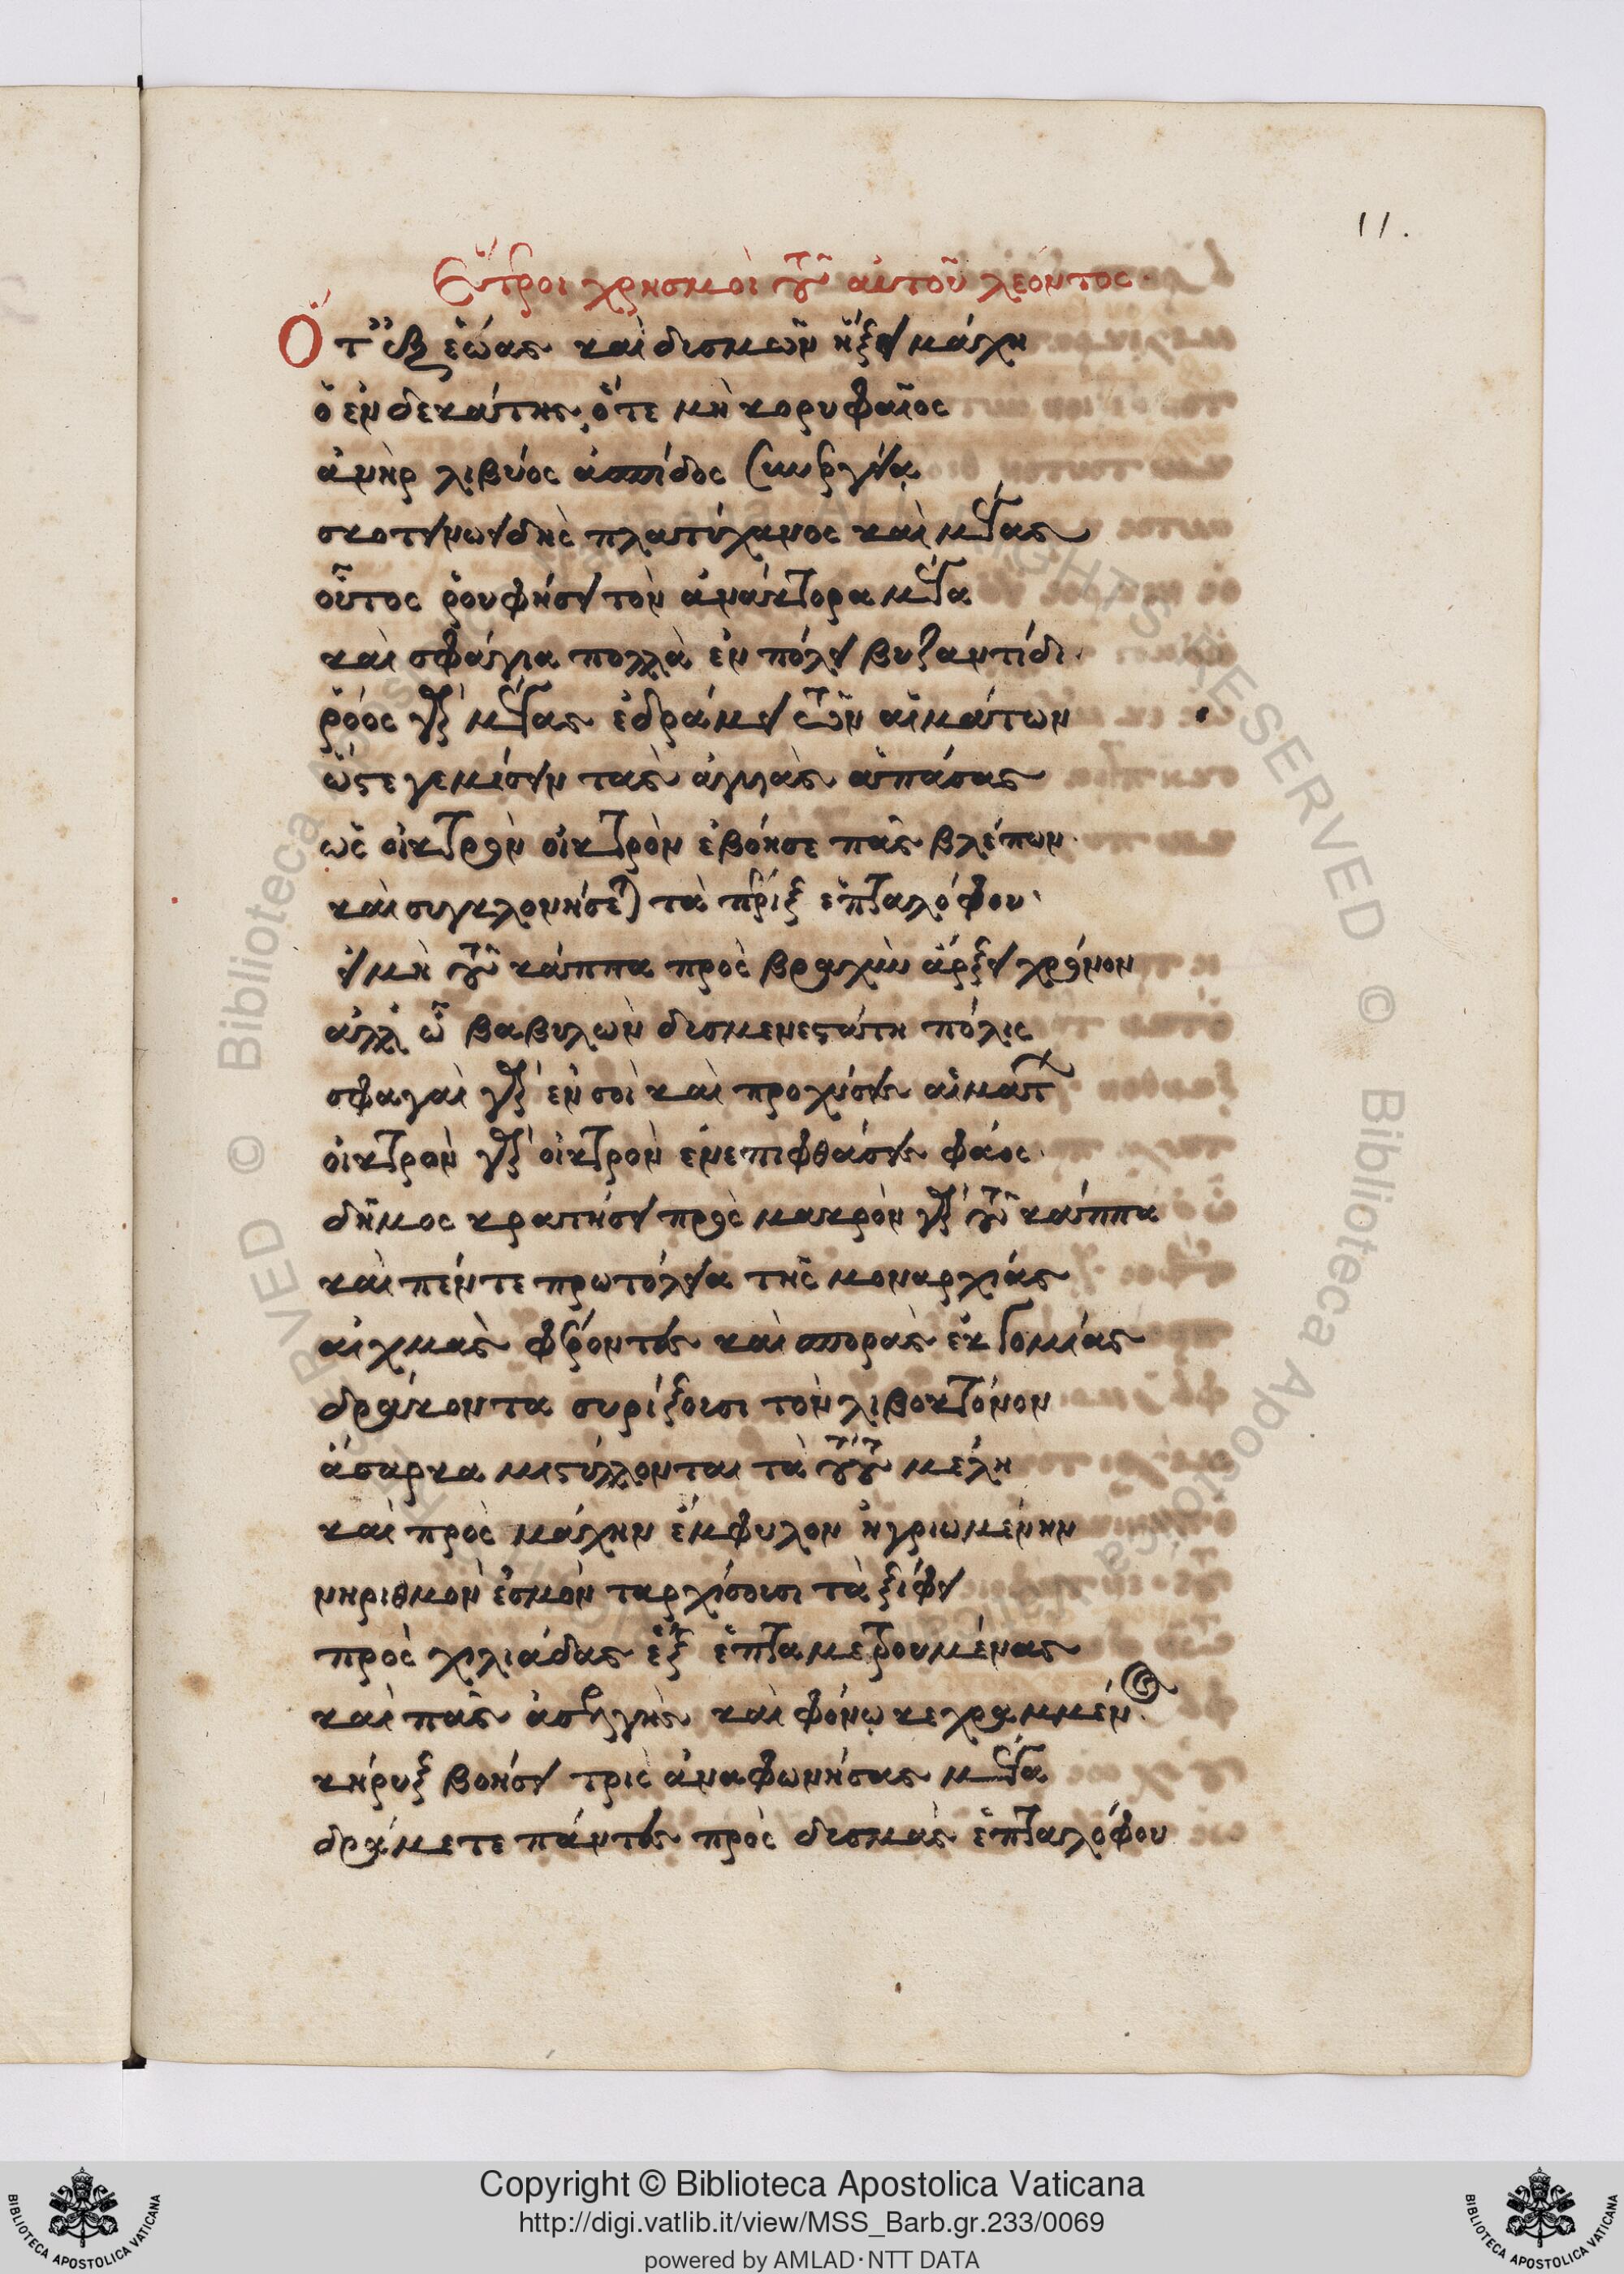 11.
Ἕτεροι χρησμοὶ τοῦ αὐτοῦ λέοντος.
Ὅτ ἐξ ἑώας καὶ δυσμῶν ἥξει μάχη
ὁ ἑνδεκάτης, ὅτε μὴ κορυφαῖος
ἀνὴρ λιβύος ἀσπίδος
πλατύχανος καὶ μέγας
οὗτος ῥουφήσει τὸν ἀνάκτορα μέγα
καὶ σφάγια πολλὰ ἐν πόλει βυζαντίδι.
ῥόος γὰρ μέγας ἐδράμει τῶν αἱμάτων
ὥστε γεμίσειν τὰς ἀγυιὰς ἁπάσας
ὡς οἰκτρὸν οἰκτρὸν ἐβόησε πᾶς βλέπων.
καὶ συγκλονήσεται τὰ πέριξ ἑπταλόφου.
εἰ μὴ τοῦ κάππα πρὸς βραχὺν ἄρξει χρόνον
ἀλλ ὦ βαβυλὼν δυσμενεστάτη πόλις
σφαγαὶ γὰρ ἐν σοὶ καὶ προχύσεις αἱμάτων
οἰκτρὸν γὰρ οἰκτρὸν ἐνεπιφθάσεις φάος.
δῆμος κρατήσει πρὸς μακρὸν γὰρ τοῦ κάππα
καὶ πέντε πρωτόλεια τῆς μοναρχίας
αἰχμὰς φέροντες καὶ σπορὰς ἐκτομίας
δράκοντα συρίξουσι τὸν λιβοκτόνον
ἄσαρκα μιστύλλονται τὰ τούτου μέλη
καὶ πρὸς μάχην ἔμφυλον ἠγριωμένην
νηριθμὸν ἑσμὸν ταρχίσουσι τὰ ξίφει
πρὸς χιλιάδας ἓξ ἑπταμετρουμένας
καὶ πᾶς ἀσελγὴς καὶ φόνῳ κεχραμμένος
κήρυξ βοήσει τρὶς ἀναφωνήσας μέγα
δράμετε πάντες πρὸς δυσμὰς ἑπταλόφου
Copyright © Biblioteca Apostolica Vaticana
http://digi.vatlib.it/view/MSS_Barb.gr.233/0069
powered by AMLAD·NTT DATA